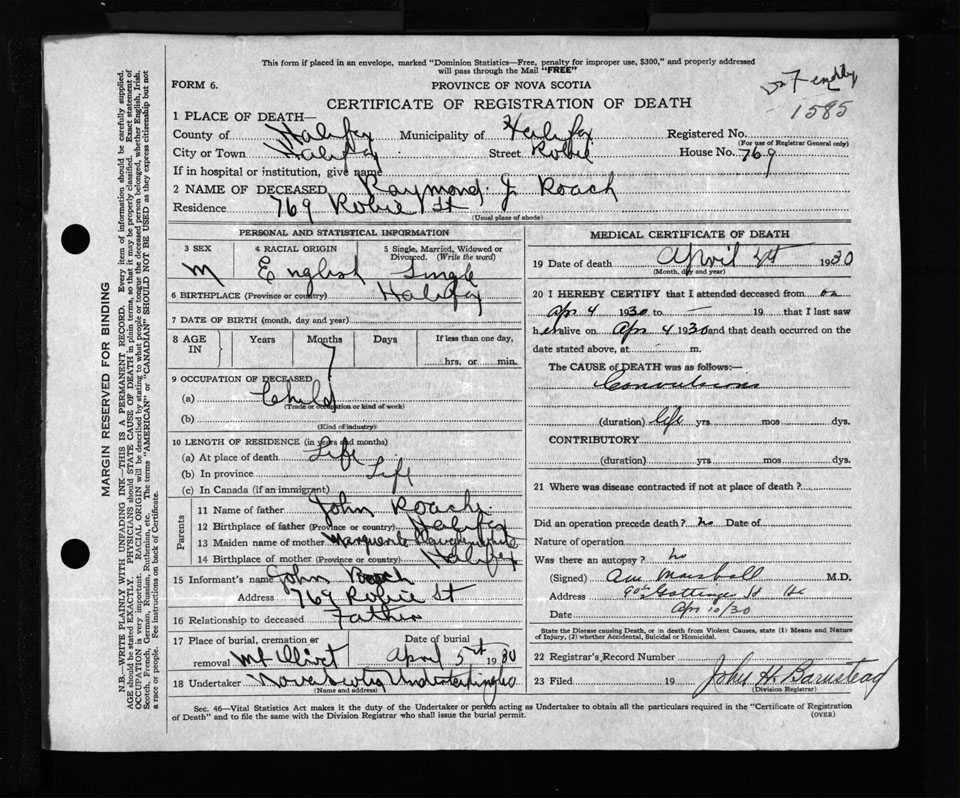 This form if placed in an envelope, marked "Dominion Statistics—Free, penalty for improper use, $300," and properly addressed
will pass through the Mail "FREE"
FORM 6.
PROVINCE OF NOVA SCOTIA
1585
CERTIFICATE OF REGISTRATION OF DEATH
1 PLACE OF DEATH—
County of Halifax Municipality of Halifax Registered No.
(For use of Registrar General only)
City or Town Halifax Street Robie House No. 769
If in hospital or institution, give name
2 NAME OF DECEASED Raymond J Roach
Residence 769 Robie St
(Usual place of abode)
PERSONAL AND STATISTICAL INFORMATION
3 SEX
M
4 RACIAL ORIGIN
English
5 Single, Married, Widowed or Divorced. (Write the word)
Single
6 BIRTHPLACE (Province or country) Halifax
7 DATE OF BIRTH (month, day and year)
8 AGE IN Years Months Days If less than one day,
7
hrs. or min.
9 OCCUPATION OF DECEASED
(a) Child
(Trade or occupation or kind of work)
(b)
(Kind of industry)
10 LENGTH OF RESIDENCE (in years and months)
(a) At place of death Life
(b) In province Life
(c) In Canada (if an immigrant)
Parents
11 Name of father John Roach
12 Birthplace of father (Province or country) Halifax
13 Maiden name of mother Marguerite
14 Birthplace of mother (Province or country) Halifax
15 Informant's name John Roach
Address 769 Robie St
16 Relationship to deceased Father
17 Place of burial, cremation or removal Mt Olivet
Date of burial
April 5th 1930
18 Undertaker Nova Scotia Undertaking Co
(Name and address)
MEDICAL CERTIFICATE OF DEATH
19 Date of death April 4th 1930
(Month, day and year)
20 I HEREBY CERTIFY that I attended deceased from on
Apr 4 1930 to — 19 that I last saw
her alive on Apr 4 1930 and that death occurred on
date stated above, at - m.
The CAUSE of DEATH was as follows:—
Convulsions
(duration) life yrs mos dys.
CONTRIBUTORY
(duration) yrs mos dys.
21 Where was disease contracted if not at place of death?
Did an operation precede death? no Date of
Nature of operation
Was there an autopsy? no
(Signed) Marshall M.D.
Address Gottingen St
Date Apr 10/30
State the Disease causing Death, or in death from Violent Causes, state (1) Means and Nature
of Injury, (2) whether Accidental, Suicidal or Homicidal.
22 Registrar's Record Number
23 Filed 19 John H. Barnstead
(Division Registrar)
Sec. 46—Vital Statistics Act makes it the duty of the Undertaker or person acting as Undertaker to obtain all the particulars required in the "Certificate of Registration
of Death" and to file the same with the Division Registrar who shall issue the burial permit.
(OVER)
MARGIN RESERVED FOR BINDING
N.B.—WRITE PLAINLY WITH UNFADING INK—THIS IS A PERMANENT RECORD. Every item of information should be carefully supplied.
AGE should be stated EXACTLY. PHYSICIANS should STATE CAUSE OF DEATH in plain terms, so that it may be properly classified. Exact statement of
OCCUPATION is very important. RACIAL ORIGIN will be described by stating to what people or tongue the deceased person belonged, whether English, Irish,
Scotch, French, German, Russian, Ruthenian, etc. The terms "AMERICAN" or "CANADIAN" SHOULD NOT BE USED as they express citizenship but not
a race or people. See instructions on back of Certificate.